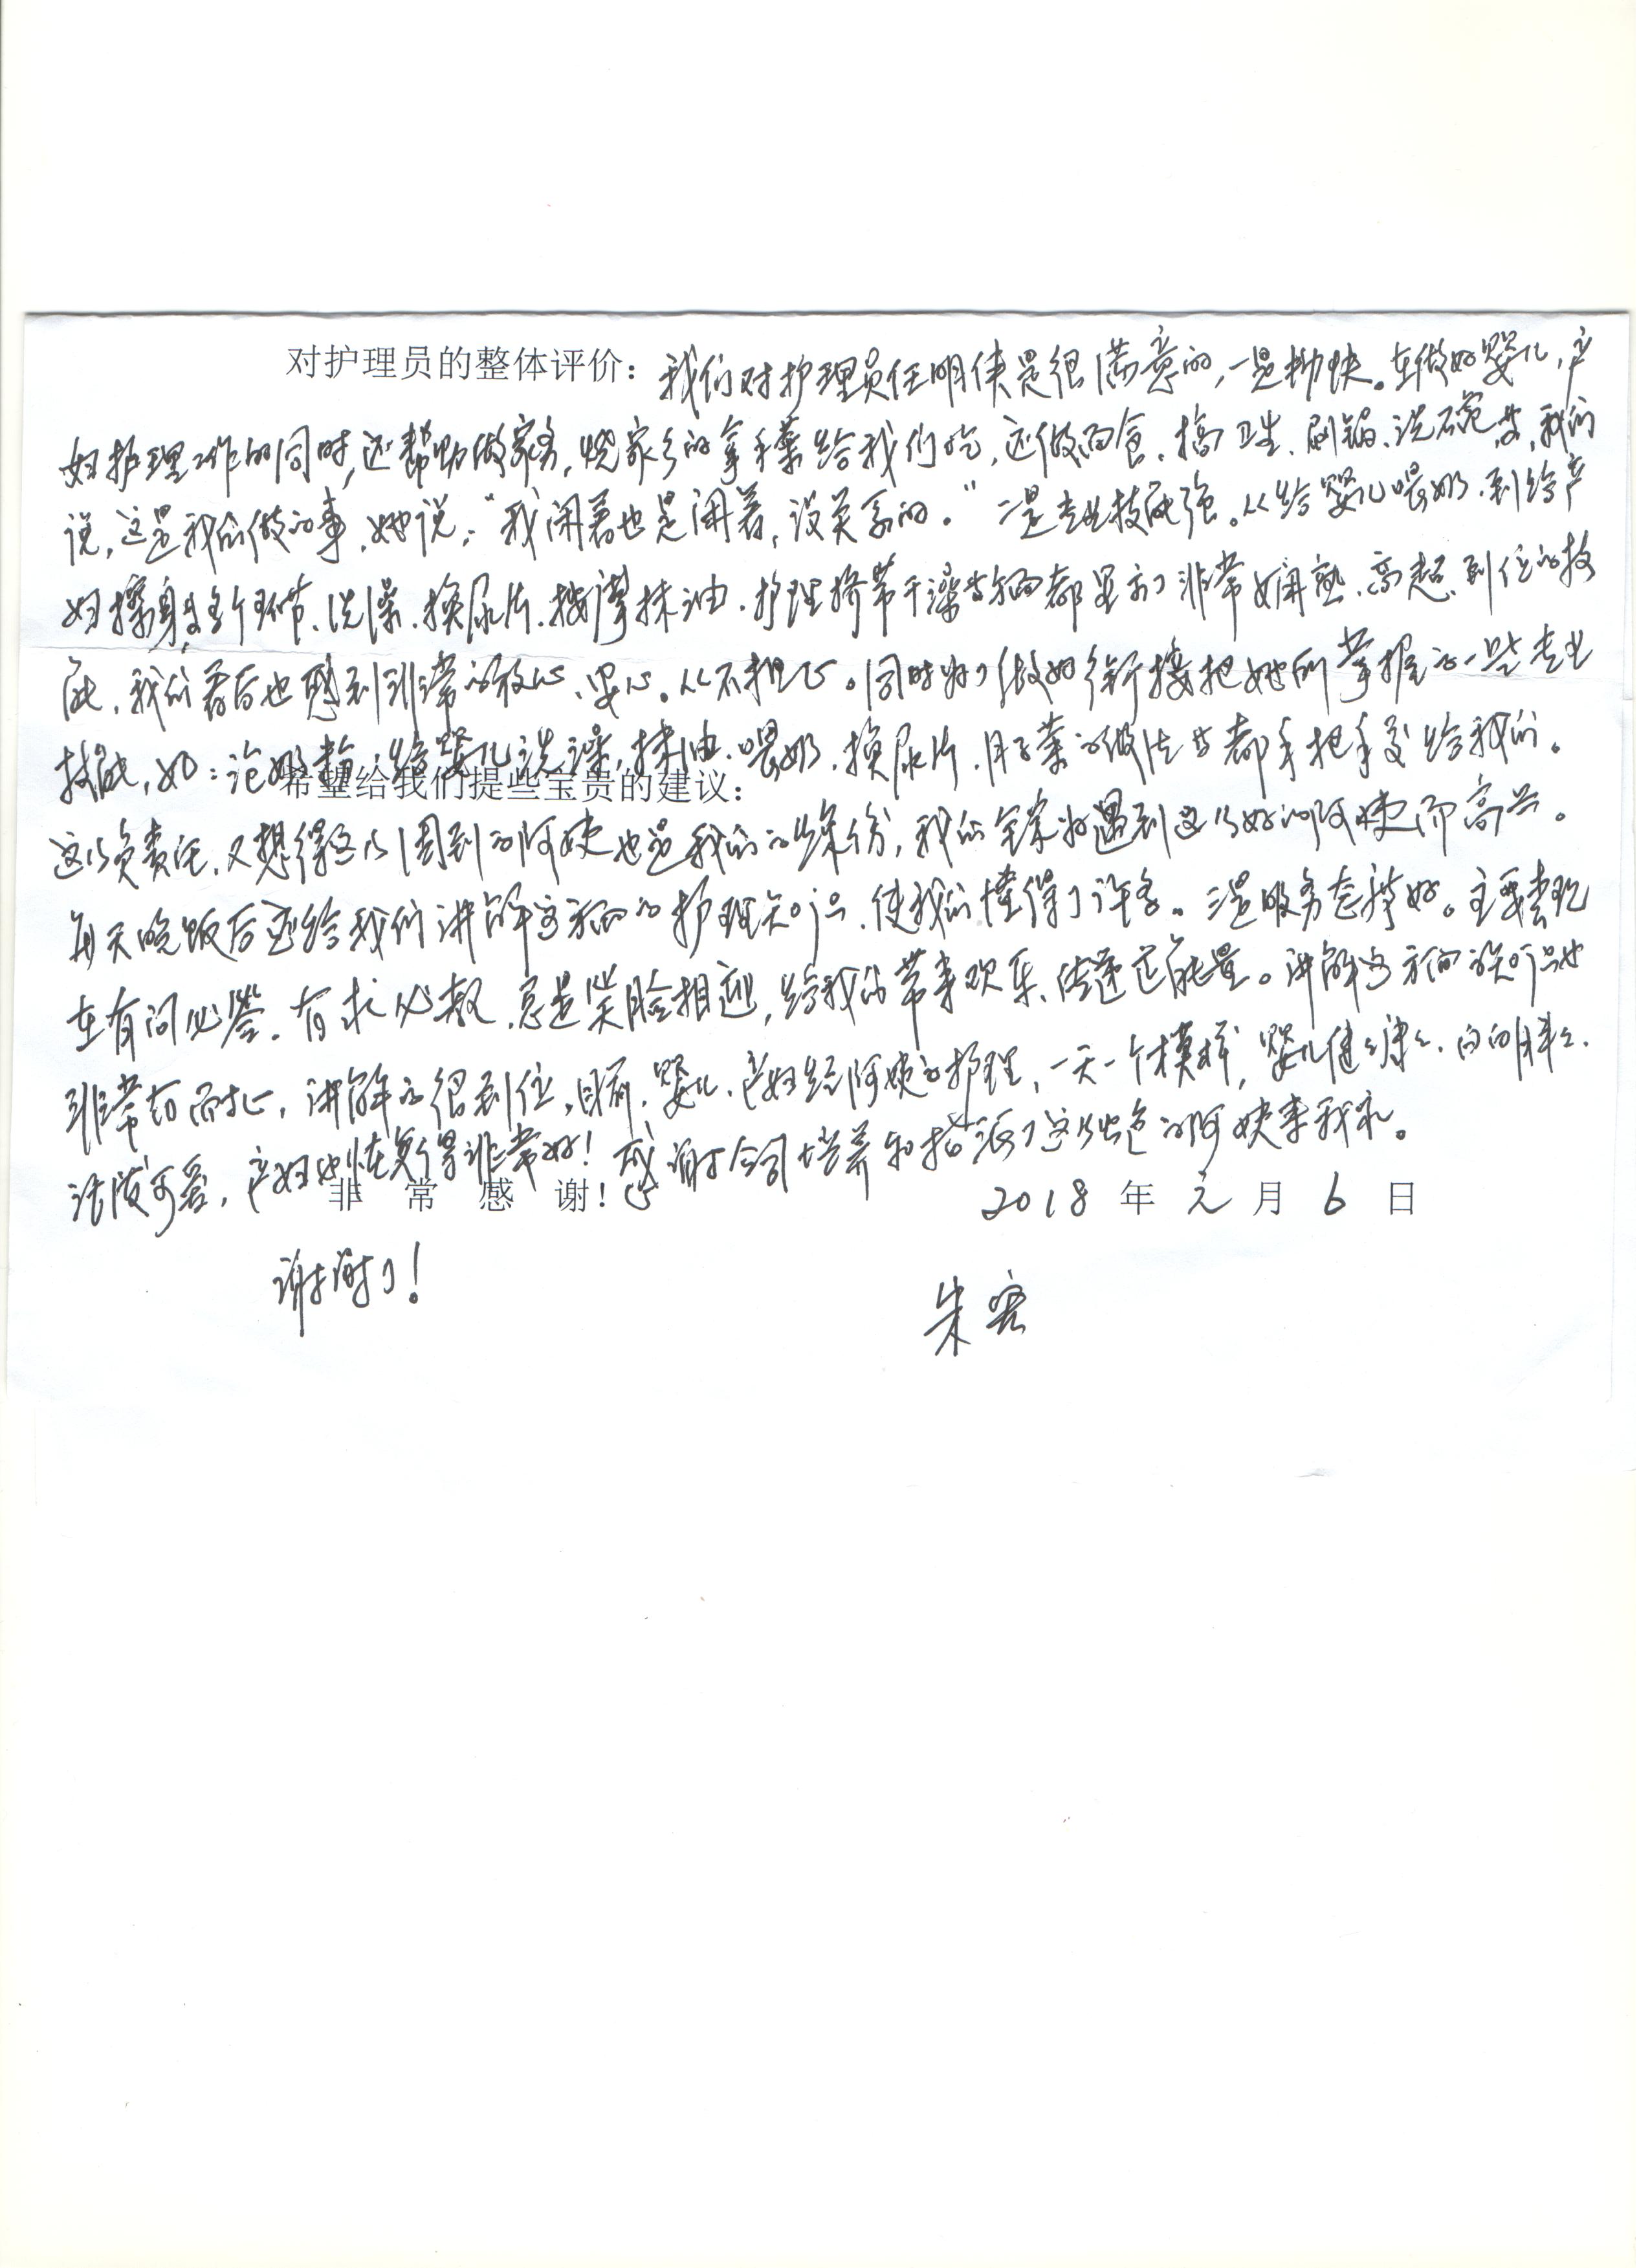 对护理员的整体评价：我们对护理员任明侠是很满意的，一是勤快。在做好婴儿，产
妇护理工作的同时，还帮助做家务，烧家乡的拿手菜给我们吃，还做面食、搞卫生、刷锅、洗碗等，我们
说，这是我们做的事，她说："我闲着也是闲着，没关系的。"二是专业技能强。从给婴儿喂奶、到给产
妇擦身各个环节、洗澡、换尿片、按摩抹油、护理脐带干燥等方面都显示了非常娴熟、高超、到位的技
能，我们看后也感到非常的放心、安心。从不担心。同时为了做好衔接把她所掌握的一些专业
技能，如：给婴儿洗澡，抹油、喂奶、换尿片、月子菜的做法等都手把手教给我们。
希望给我们提些宝贵的建议：
这么负责任，又想得这么周到的阿姨也是我们的缘份，我们全家为遇到这么好的阿姨而高兴。
每天晚饭后还给我们讲解方面的护理知识，使我们懂得了许多。三是服务态度好。主要表现
在有问必答、有求必教、总是笑脸相迎，给我们带来欢乐、传递正能量。讲解方面的知识也
非常专而扎，讲解的很到位。目前，婴儿、产妇经阿姨的护理，一天一个模样，婴儿健健康康、白白胖胖、
活泼可爱，产妇也恢复得非常好！感谢公司培养和指派了这么出色的阿姨来我家。
非 常 感 谢！ 2018 年 元 月 6 日
谢谢了！ 朱密